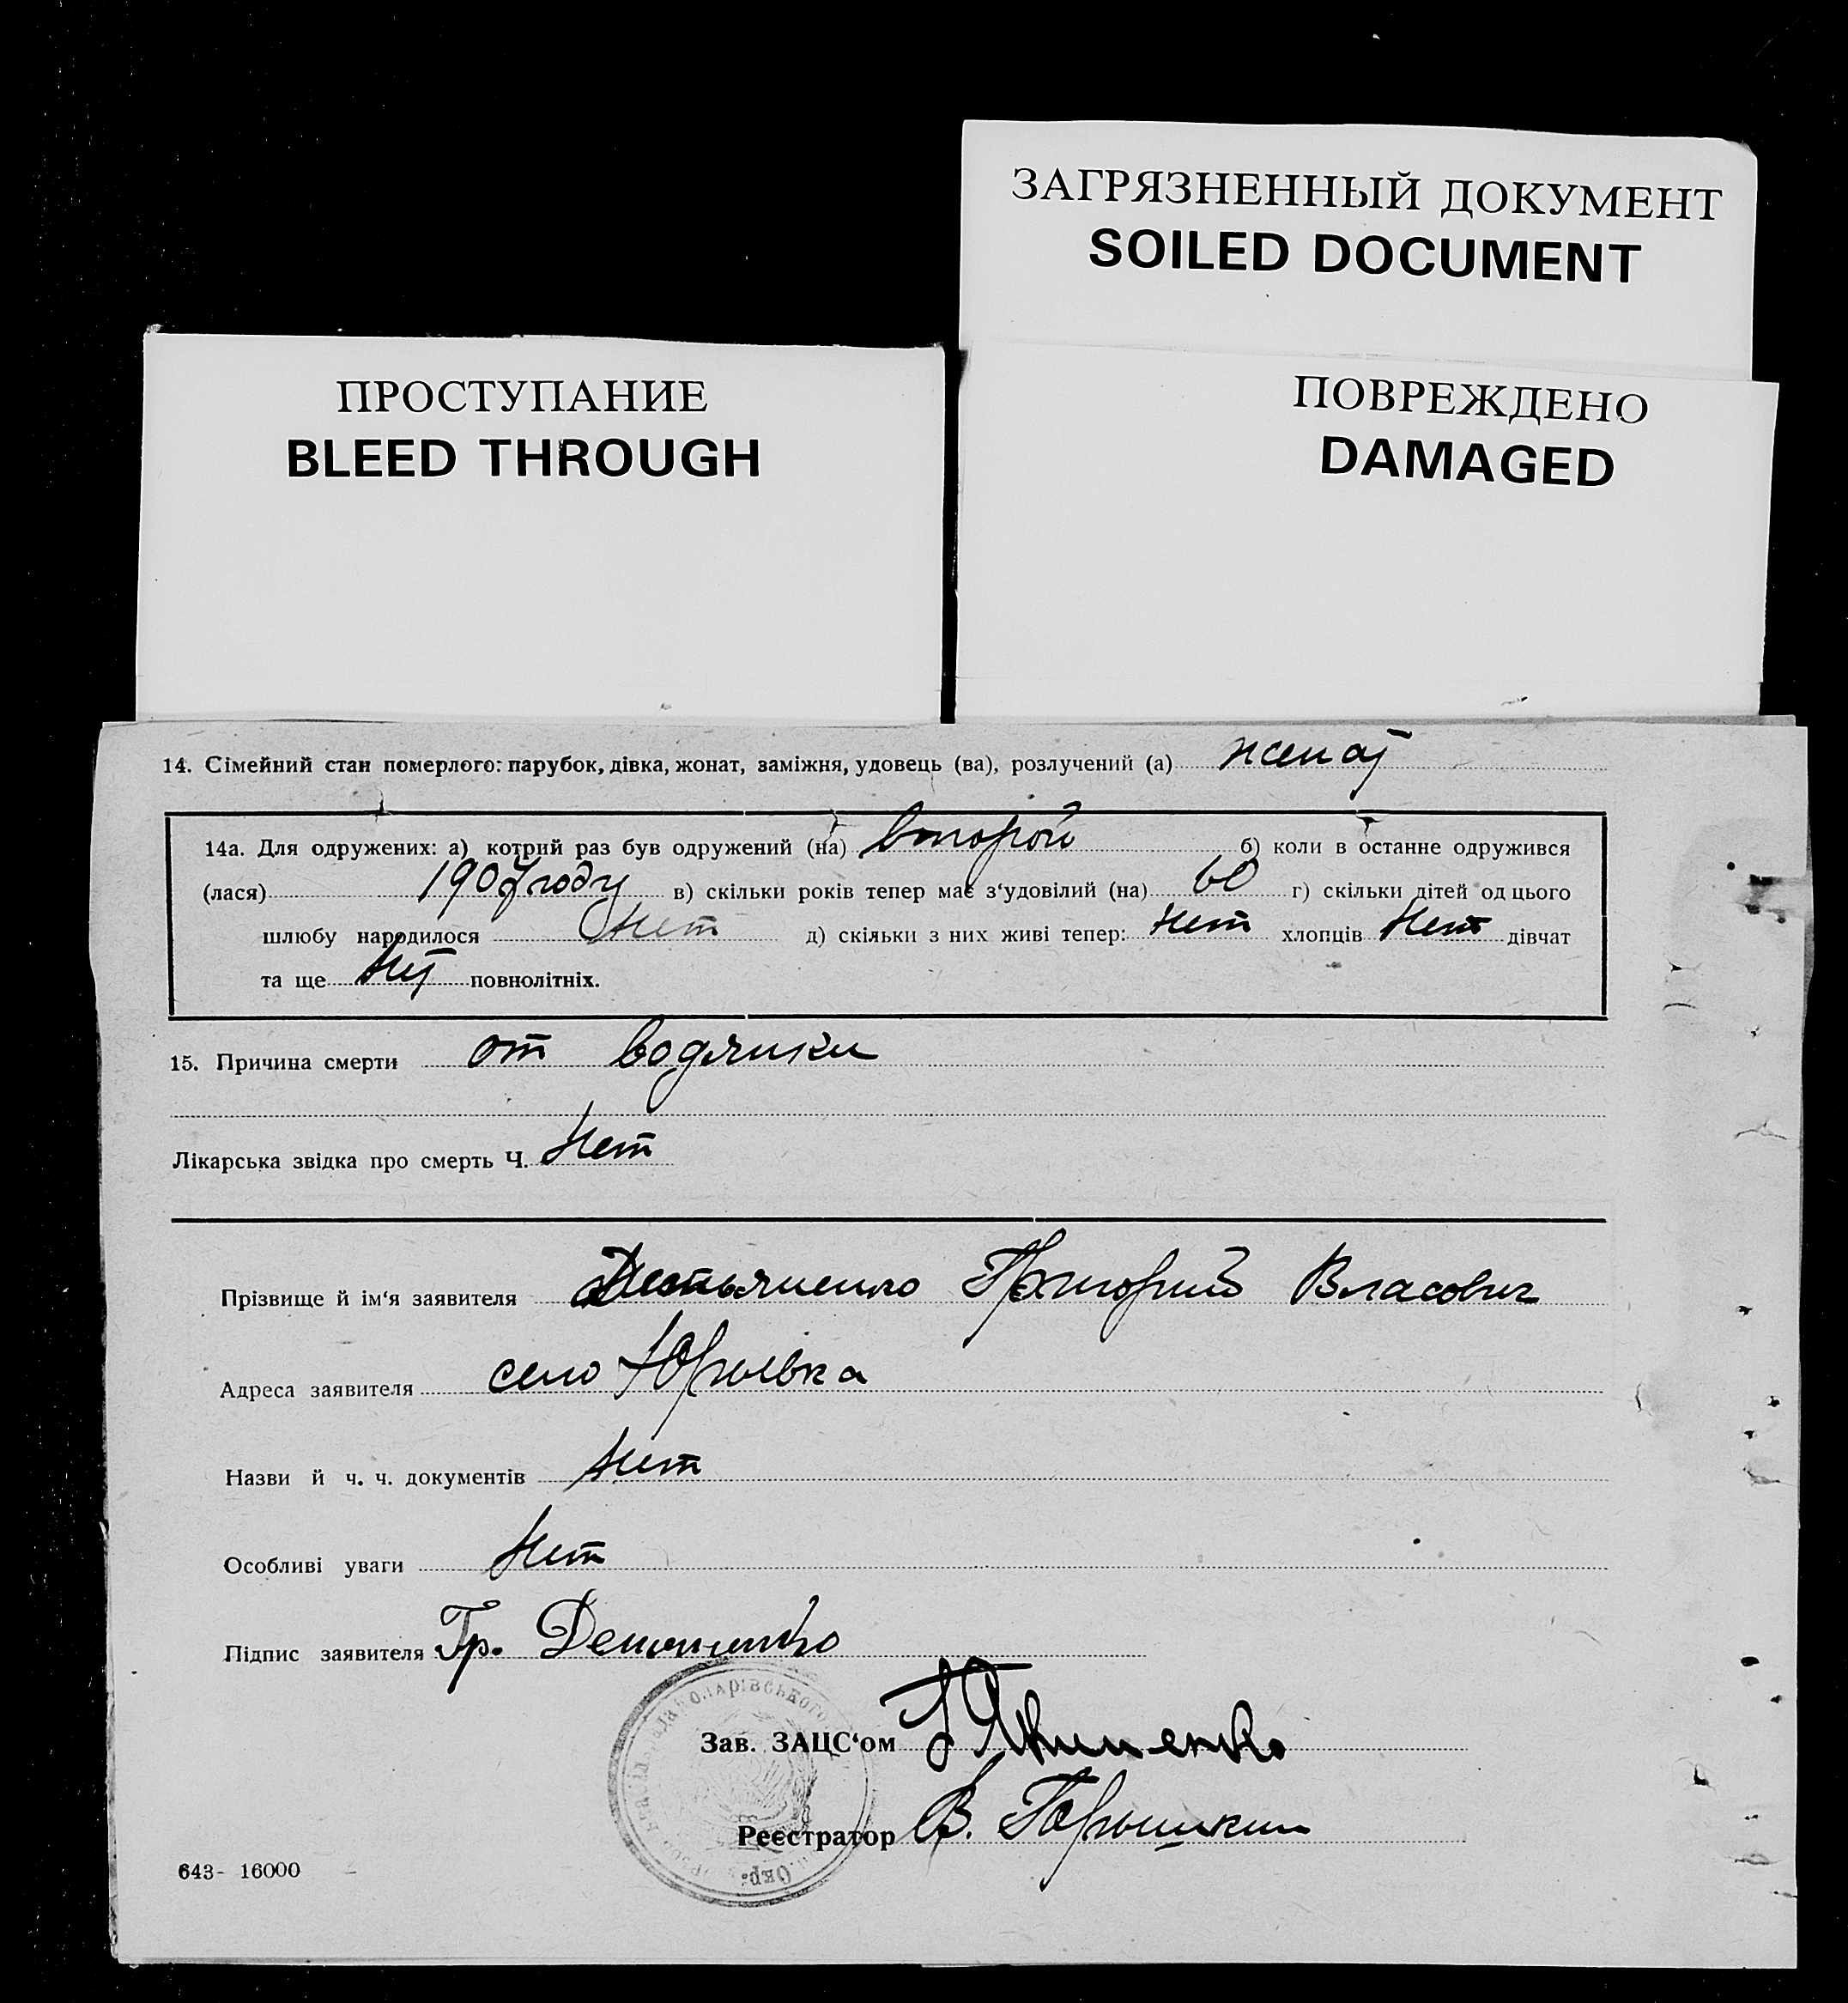 ЗАГРЯЗНЕННЫЙ ДОКУМЕНТ
SOILED DOCUMENT
ПРОСТУПАНИЕ
BLEED THROUGH
ПОВРЕЖДЕНО
DAMAGED
14. Сімейний стан померлого: парубок, дівка, жонат, заміжня, удовець (ва), розлучений (а) женат
14а. Для одружених: а) котрий раз був одружений (на) второй б) коли в останне одружився
(лася) 1907 году в) скільки років тепер має з‘удовілий (на) 60 г) скільки дітей од цього
шлюбу народилося нет д) скільки з них живі тепер: нет хлопців нет дівчат
та ще нет повнолітніх.
15. Причина смерти от водянки
Лікарська звідка про смерть Ч. нет
Прізвище й ім‘я заявителя Григорий Власович
Адреса заявителя село Юрьевка
Назви й ч. ч. документів нет
Особливі уваги нет
Підпис заявителя Гр.
Зав. ЗАЦС‘ом
Реєстратор В.
643- 16000